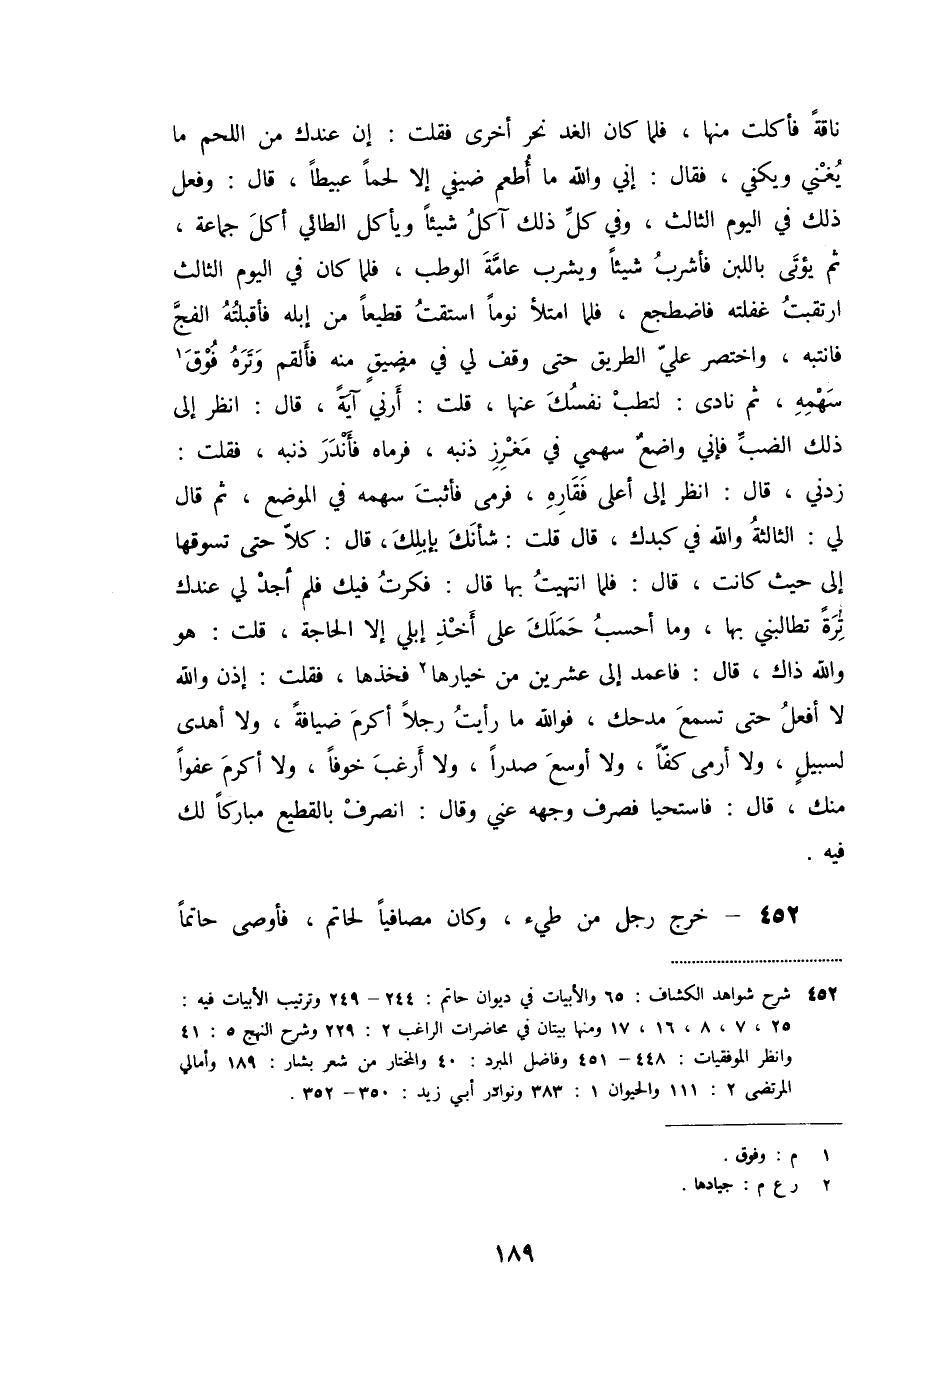 ناقةً فأكلت منها ، فلما كان الغد نحر أخرى فقلت : إن عندك من اللحم ما
يُغْني ويكفي ، فقال : إني والله ما أُطعم ضيفي إلا لحماً عبيطاً ، قال : وفعل
ذلك في اليوم الثالث ، وفي كلِّ ذلك آكلُ شيئاً ويأكل الطائي أكلَ جماعة ،
ثم يؤتَى باللبن فأشربُ شيئاً ويشرب عامَّةَ الوطب ، فلما كان في اليوم الثالث
ارتقبتُ غفلته فاضطجع ، فلما امتلأ نوماً استقتُ قطيعاً من إبله فأقبلتُهُ الفجَّ
فانتبه ، واختصر عليّ الطريق حتى وقف لي في مضيقٍ منه فأَلقم وَتَرَهُ فُوْقَ١
سَهْمِهِ ، ثم نادى : لتطبْ نفسُكَ عنها ، قلت : أَرني آيَةً ، قال : انظر إلى
ذلك الضبِّ فإني واضعٌ سهمي في مَغْرِزِ ذنبه ، فرماه فأَنْدَرَ ذنبه ، فقلت :
زدني ، قال : انظر إلى أعلى فَقَارِهِ ، فرمى فأثبتَ سهمه في الموضع ، ثم قال
لي : الثالثةُ والله في كبدك ، قال قلت : شأنَكَ بإبلِكَ، قال : كلاّ حتى تسوقها
إلى حيث كانت ، قال : فلما انتهيتُ بها قال : فكرتُ فيك فلم أجدْ لي عندك
تِرَةً تطالبني بها ، وما أحسبُ حَمَلَكَ على أَخْذِ إبلي إلا الحاجة ، قلت : هو
والله ذاك ، قال : فاعمد إلى عشرين من خيارها٢ فخذها ، فقلت : إذن والله
لا أفعلُ حتى تسمعَ مدحك ، فوالله ما رأيتُ رجلاً أكرمَ ضيافةً ، ولا أهدى
لسبيلٍ ، ولا أرمى كفّاً ، ولا أوسعَ صدراً ، ولا أَرغبَ خوفاً ، ولا أكرمَ عفواً
منك ، قال : فاستحيا فصرف وجهه عني وقال : انصرفْ بالقطيع مباركاً لك
فيه .
٤٥٢ – خرج رجل من طيء ، وكان مصافياً لحاتم ، فأوصى حاتماً
٤٥٢ شرح شواهد الكشاف : ٦٥ والأبيات في ديوان حاتم : ٢٤٤ – ٢٤٩ وترتيب الأبيات فيه :
٢٥ ، ٧ ، ٨ ، ١٦ ، ١٧ ومنها بيتان في محاضرات الراغب ٢ : ٢٢٩ وشرح النهج ٥ : ٤١
وانظر الموفقيات : ٤٤٨ – ٤٥١ وفاضل المبرد : ٤٠ والمختار من شعر بشار : ١٨٩ وأمالي
المرتضى ٢ : ١١١ والحيوان ١ : ٣٨٣ ونوادر أبي زيد : ٣٥٠ – ٣٥٢ .
١ م : وفوق .
٢ ر ع م : جيادها .
١٨٩